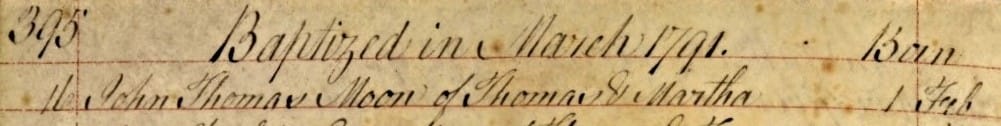 395 Baptized in March 1791. Born
16 John Thomas Moon of Thomas & Martha 1 Feb